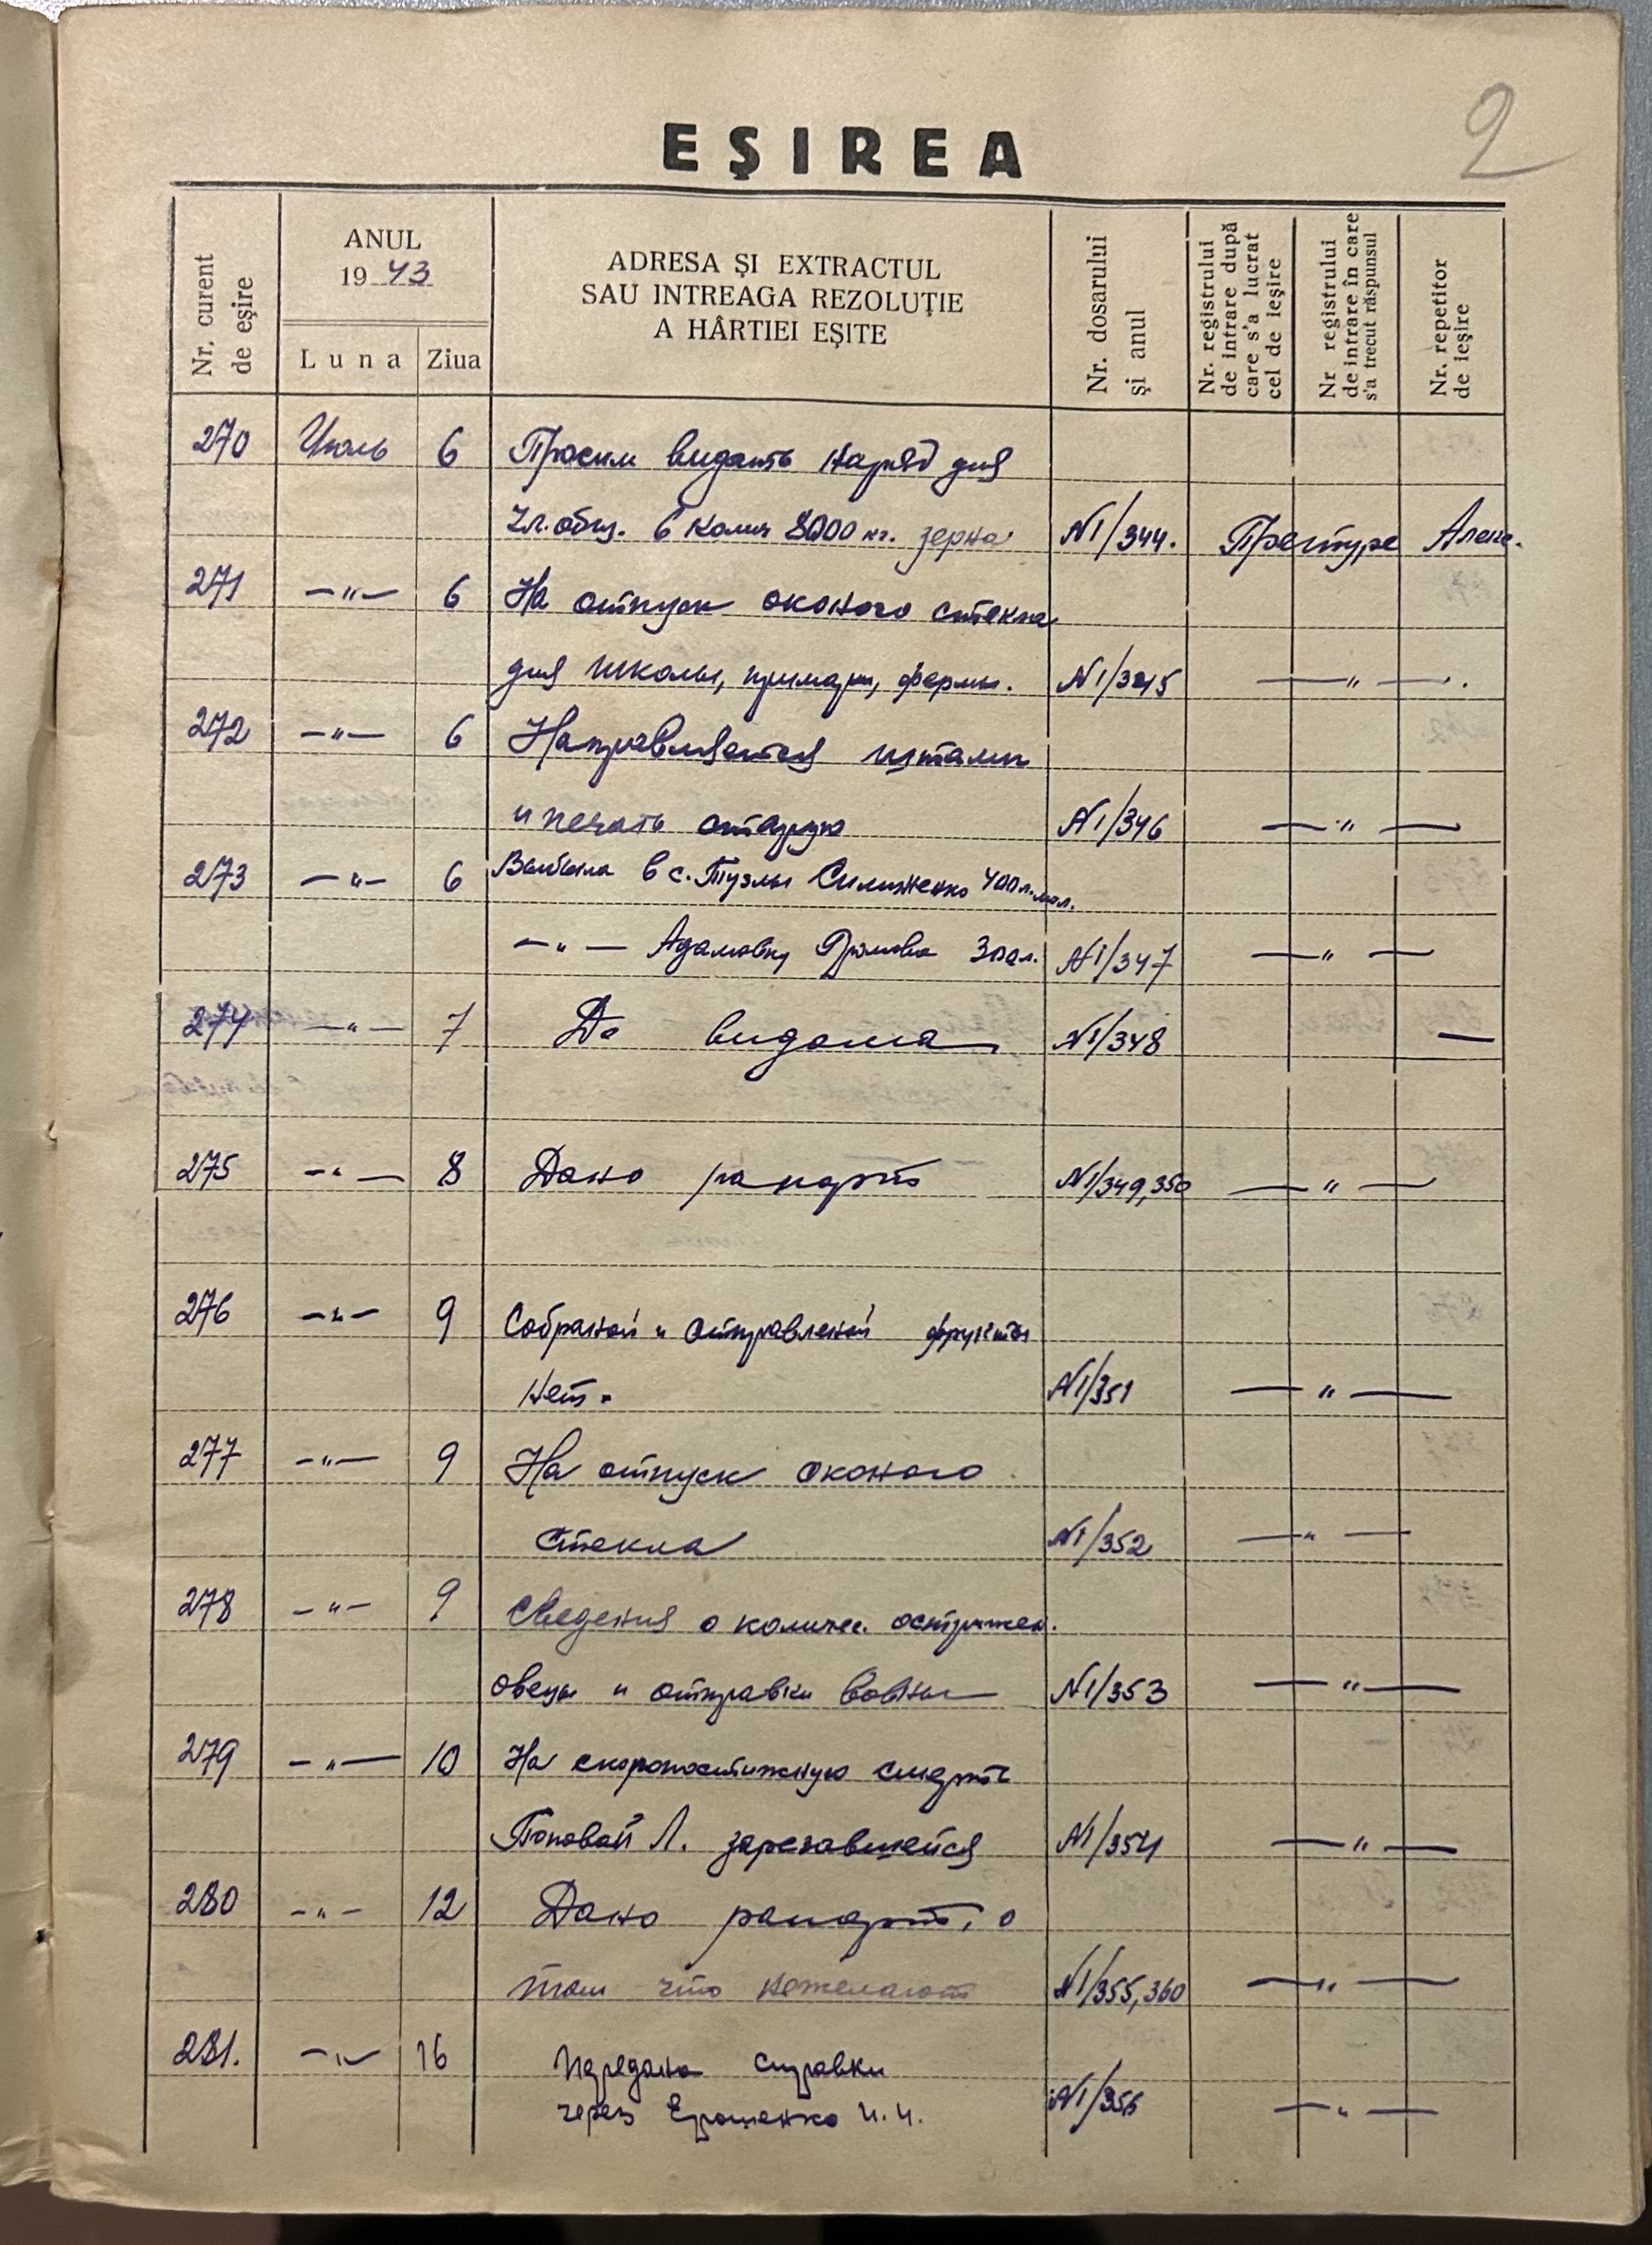 2
EŞIREA
Nr. curent de eşire
ANUL
19 43
Luna
Ziua
ADRESA ŞI EXTRACTUL
SAU INTREAGA REZOLUŢIE
A HÂRTIEI EŞITE
Nr. dosarului şi anul
Nr. registrului de intrare după care s'a lucrat cel de ieşire
Nr registrului de intrare în care s'a trecut răspunsul
Nr. repetitor de ieşire
270 Июль 6 Просим видать наряд для
Чл. общ. в колич 8000 кг. зерна N1/344. Претуре
271 —"— 6 На отпуск оконого стекла
для школы, примари, фермы. N1/345 —"—.
272 —"— 6 Направляется штамп
и печать старую N1/346 —"—
273 —"— 6 в с. Тузлы 400 л. мол.
—"— Адамовку 300 л. N1/347 —"—
274 —"— 7 видома N1/348 —
275 —"— 8 Дано рапорт N1/349,350 —"—
276 —"— 9 Собраной и отправленой фрукты
нет. N1/351 —"—
277 —"— 9 На отпуск оконого
стекла N1/352 —"—
278 —"— 9 Сведения о количес. острижен.
овецы и отправки вовны N1/353 —"—
279 —"— 10 На скоропостижную смерть
Поповай Л. зарезавшейся N1/354 —"—
280 —"— 12 Дано рапорт, о
том что нежелают N1/355,360 —"—
281. —"— 16 Передано справки
через Ерошенко И. И. N1/356 —"—